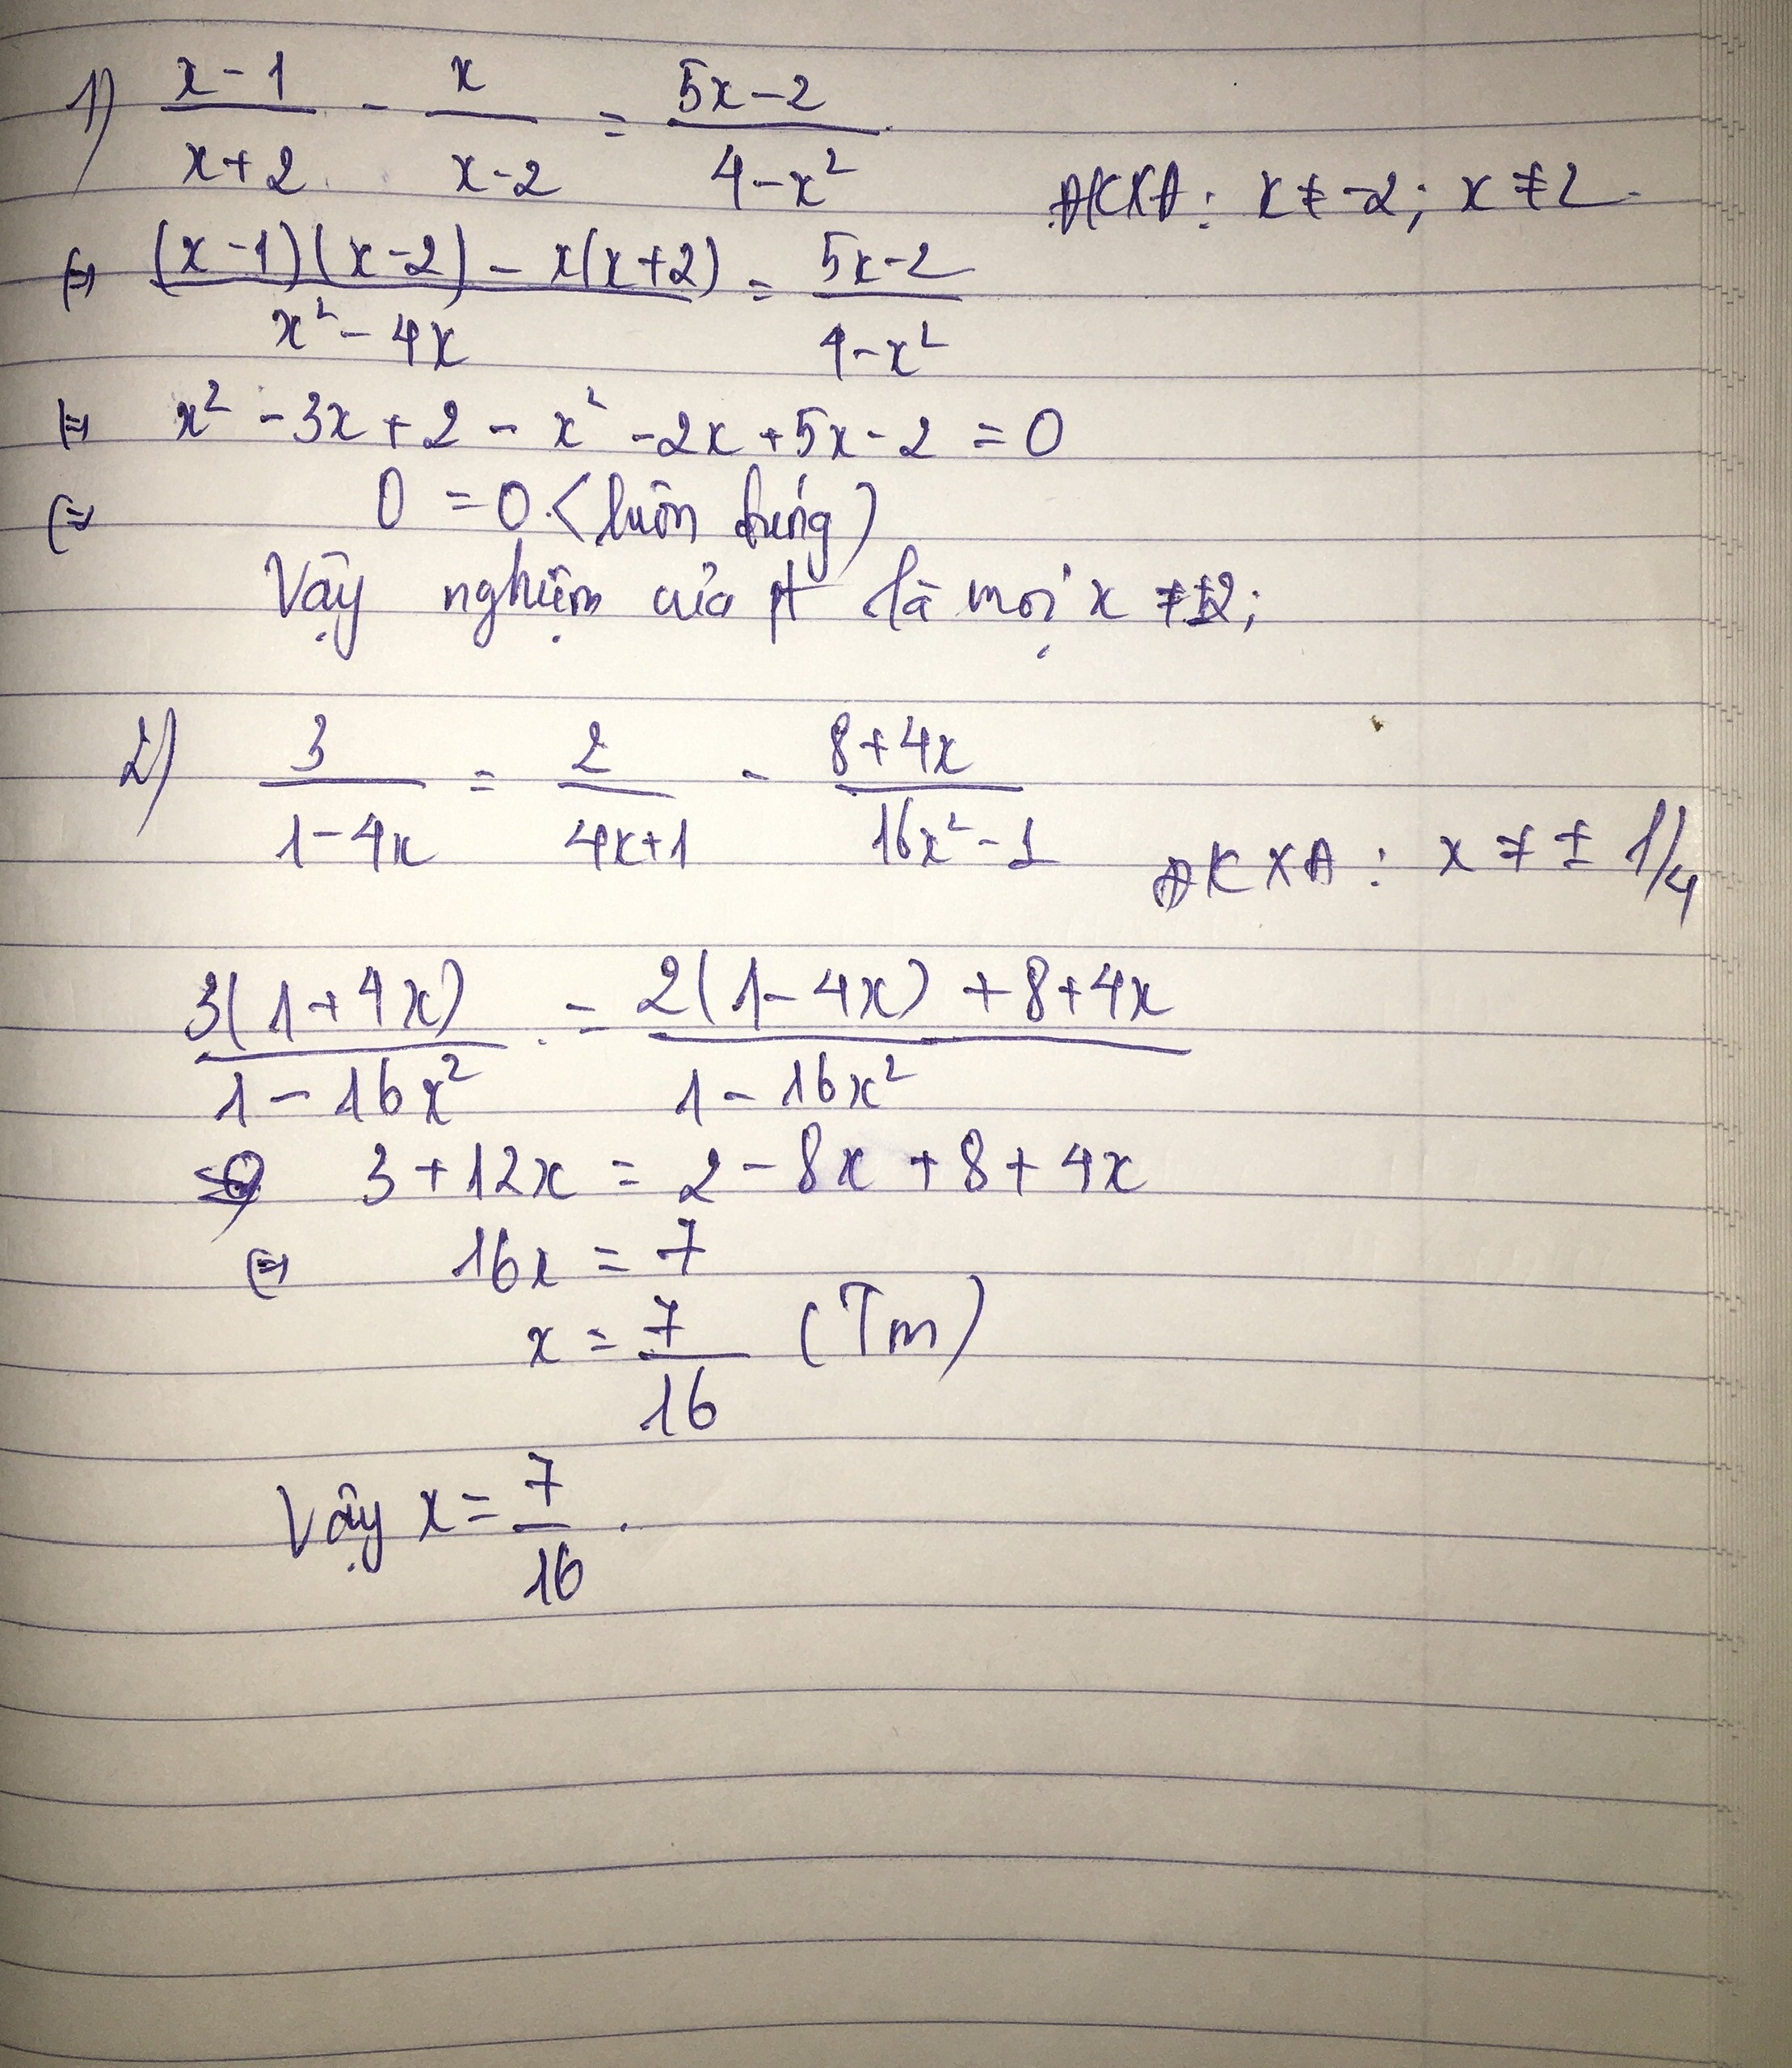 1) (x-1)/(x+2) - x/(x-2) = (5x-2)/(4-x²)
ĐKXĐ: x ≠ -2; x ≠ 2.
⇔ ((x-1)(x-2) - x(x+2))/(x²-4x) = (5x-2)/(4-x²)
⇔ x² - 3x + 2 - x² - 2x + 5x - 2 = 0
⇔ 0 = 0 (luôn đúng)
Vậy nghiệm của pt là mọi x ≠ ±2;
2) 3/(1-4x) = 2/(4x+1) - (8+4x)/(16x²-1)
ĐKXĐ: x ≠ ± 1/4
3(1+4x)/(1-16x²) = (2(1-4x)+8+4x)/(1-16x²)
⇔ 3+12x = 2-8x+8+4x
⇔ 16x = 7
x = 7/16 (Tm)
Vậy x = 7/16.